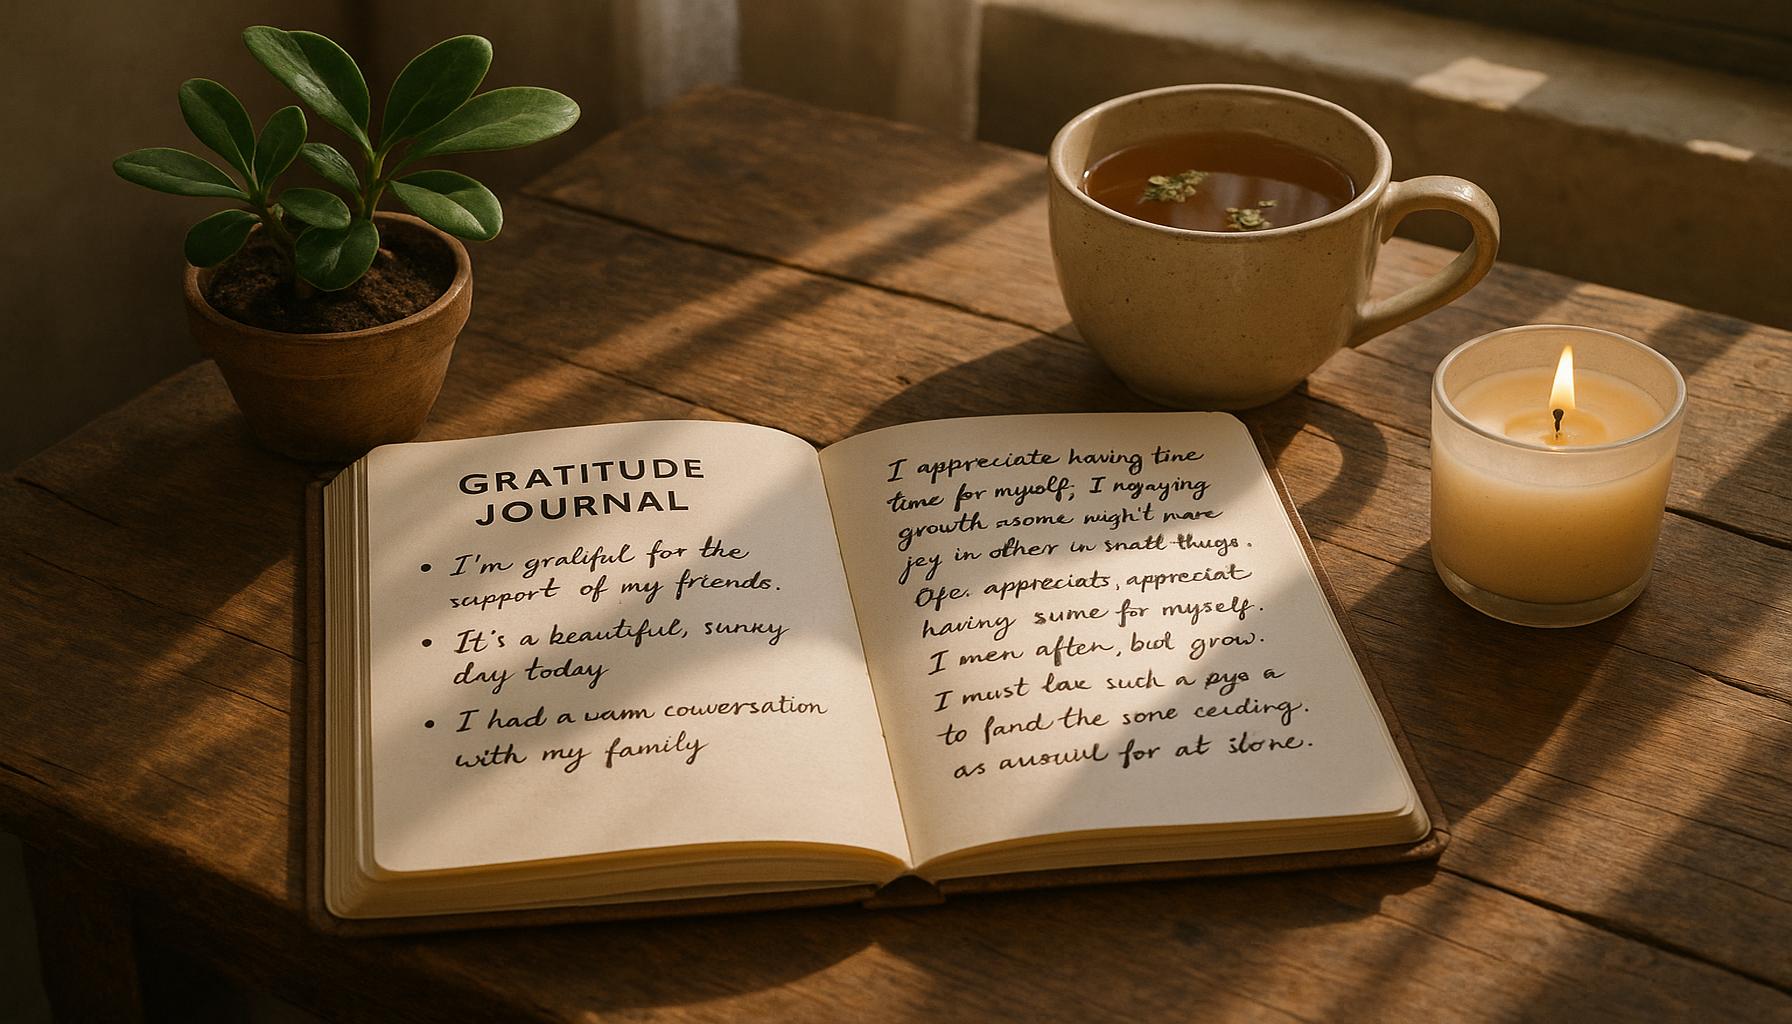 GRATITUDE
JOURNAL
• I'm gratiful for the
support of my friends.
• It's a beautiful, sunny
day today
• I had a warm conversation
with my family
I appreciate having tine
time for myself; I
growth some might
in other in small thugs.
appreciats, appreciat
having sume for myself.
I men aften, but grow.
I must lax such a pys a
to fand the sone cerding.
as for at slone.